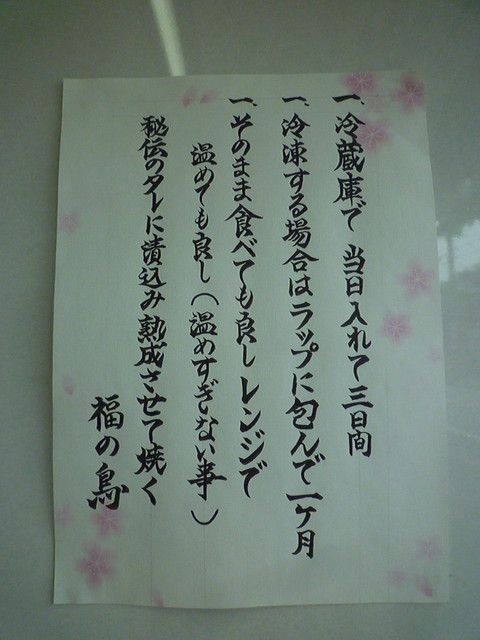 一、冷蔵庫で 当日入れて三日間
一、冷凍する場合はラップに包んで一ケ月
一、そのまま食べても良しレンジで
温めても良し(温めすぎない事)
秘伝のタレに漬込み熟成させて焼く
福の鳥